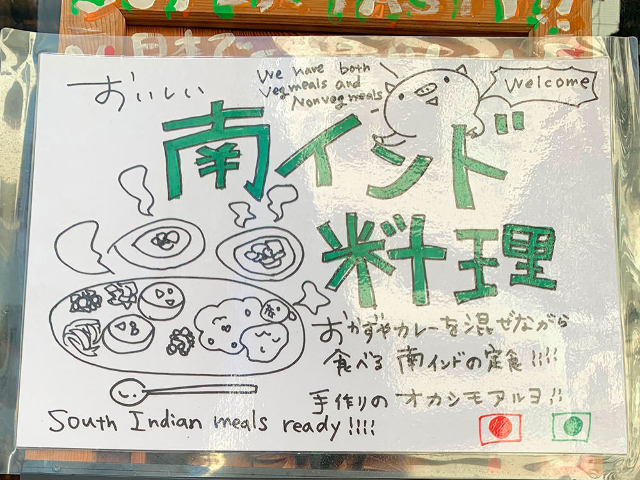 おいしい
We have both
Vegmeals and
Nonvegmeals
Welcome
南インド
料理
おかずやカレーを混ぜながら
食べる 南インドの定食!!!!
手作りの オカシモアルヨ!!
South Indian meals ready!!!!